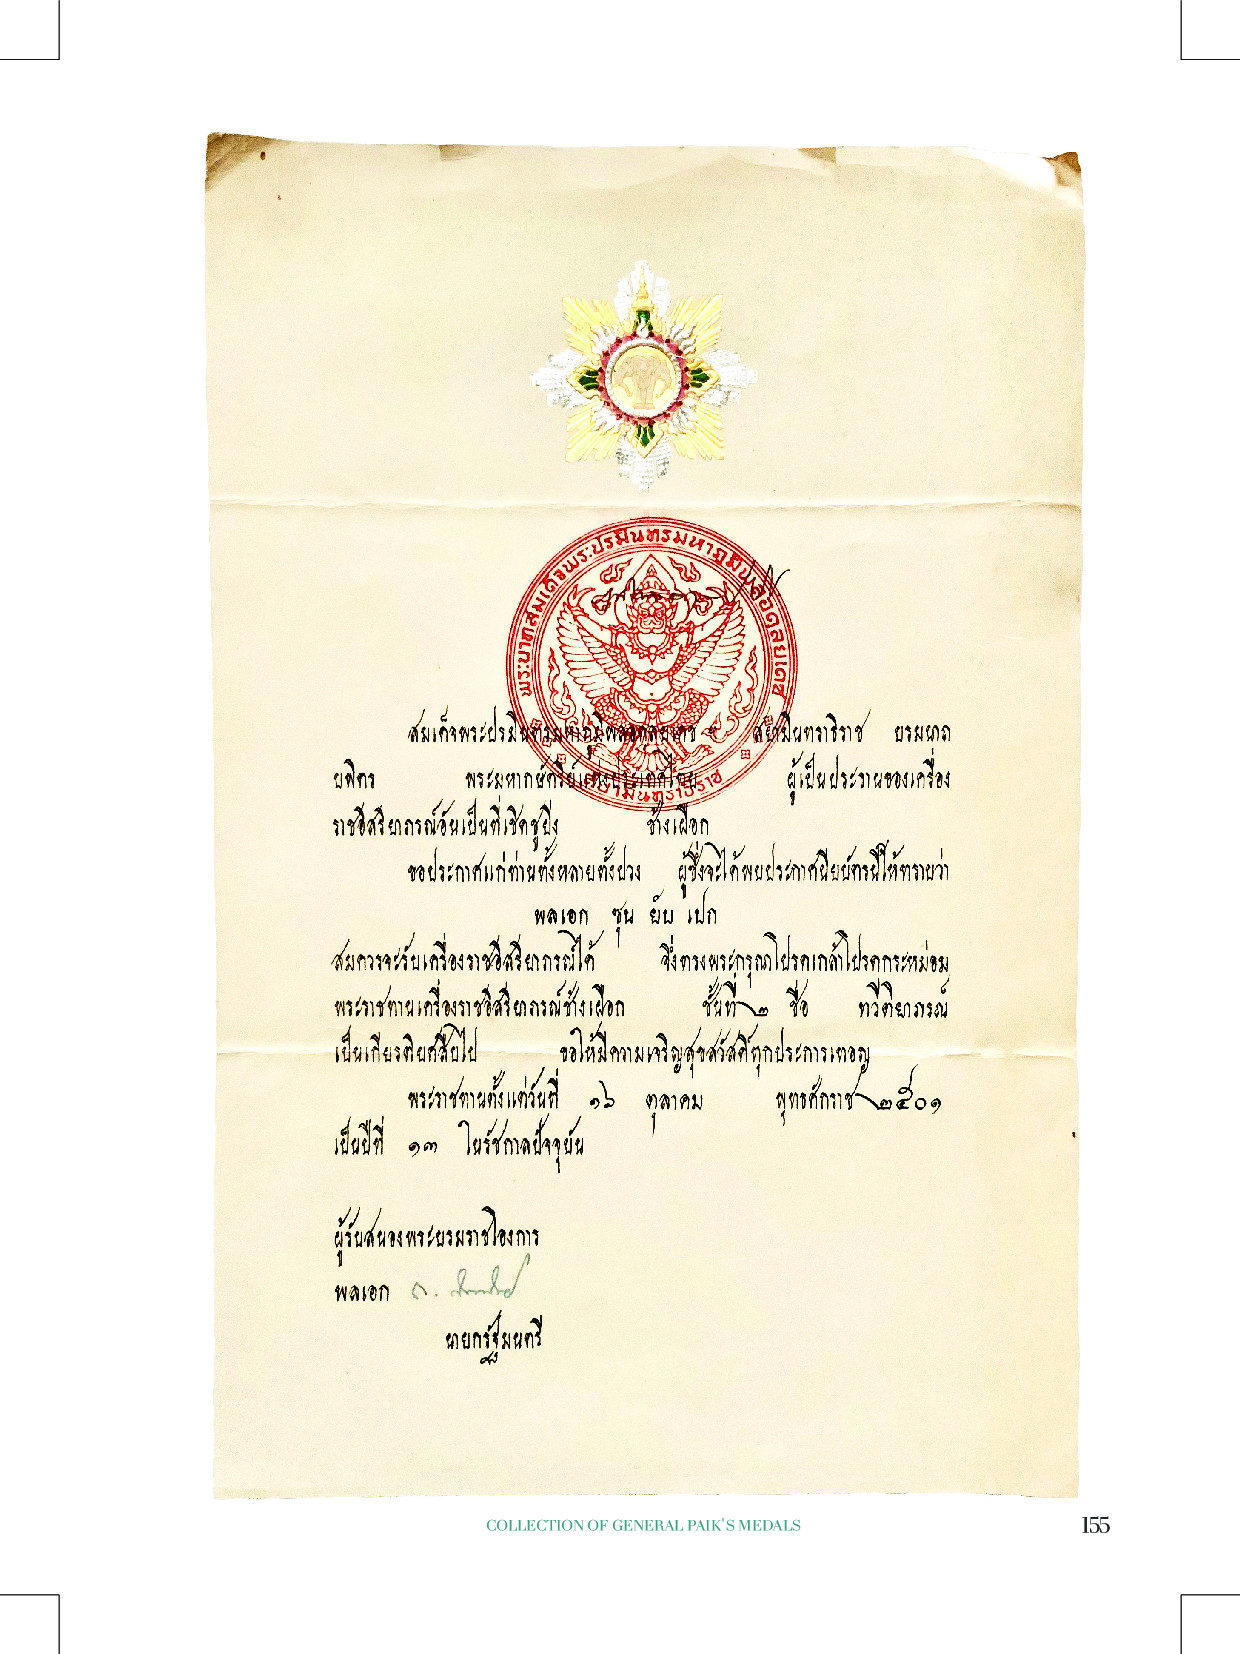 พระบาทสมเด็จพระปรมินทรมหาภูมิพลอดุลยเดช
สยามินทราธิราช
สมเด็จพระปรมินทรมหาภูมิพลอดุลยเดช สยามินทราธิราช บรมนาถ
บพิตร พระมหากษัตริย์แห่งประเทศไทย ผู้เป็นประธานของเครื่อง
ราชอิสริยาภรณ์อันเป็นที่เชิดชูยิ่ง ช้างเผือก
ขอประกาศแก่ท่านทั้งหลายทั้งปวง ผู้ซึ่งจะได้พบประกาศนียบัตรนี้ให้ทราบว่า
พลเอก ซุน ยับ เปก
สมควรจะรับเครื่องราชอิสริยาภรณ์ได้ จึ่งทรงพระกรุณาโปรดเกล้าโปรดกระหม่อม
พระราชทานเครื่องราชอิสริยาภรณ์ช้างเผือก ชั้นที่ ๒ ชื่อ ทวีติยาภรณ์
เป็นเกียรติยศสืบไป ขอให้มีความเจริญสุขสวัสดิ์ทุกประการเทอญ
พระราชทานตั้งแต่วันที่ ๑๖ ตุลาคม พุทธศักราช ๒๕๐๑
เป็นปีที่ ๑๓ ในรัชกาลปัจจุบัน
ผู้รับสนองพระบรมราชโองการ
พลเอก
นายกรัฐมนตรี
COLLECTION OF GENERAL PAIK'S MEDALS
155